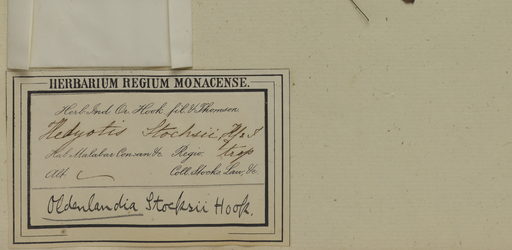 HERBARIUM REGIUM MONACENSE.
Herb. Ind. Or. Hook. fil. & Thomson
Hedyotis Stocksii, H.f. & T
Hab. Malabar Concan &c. Regio. trop
Alt. Coll. Stocks, Law, &c.
Oldenlandia Stocksii Hook.